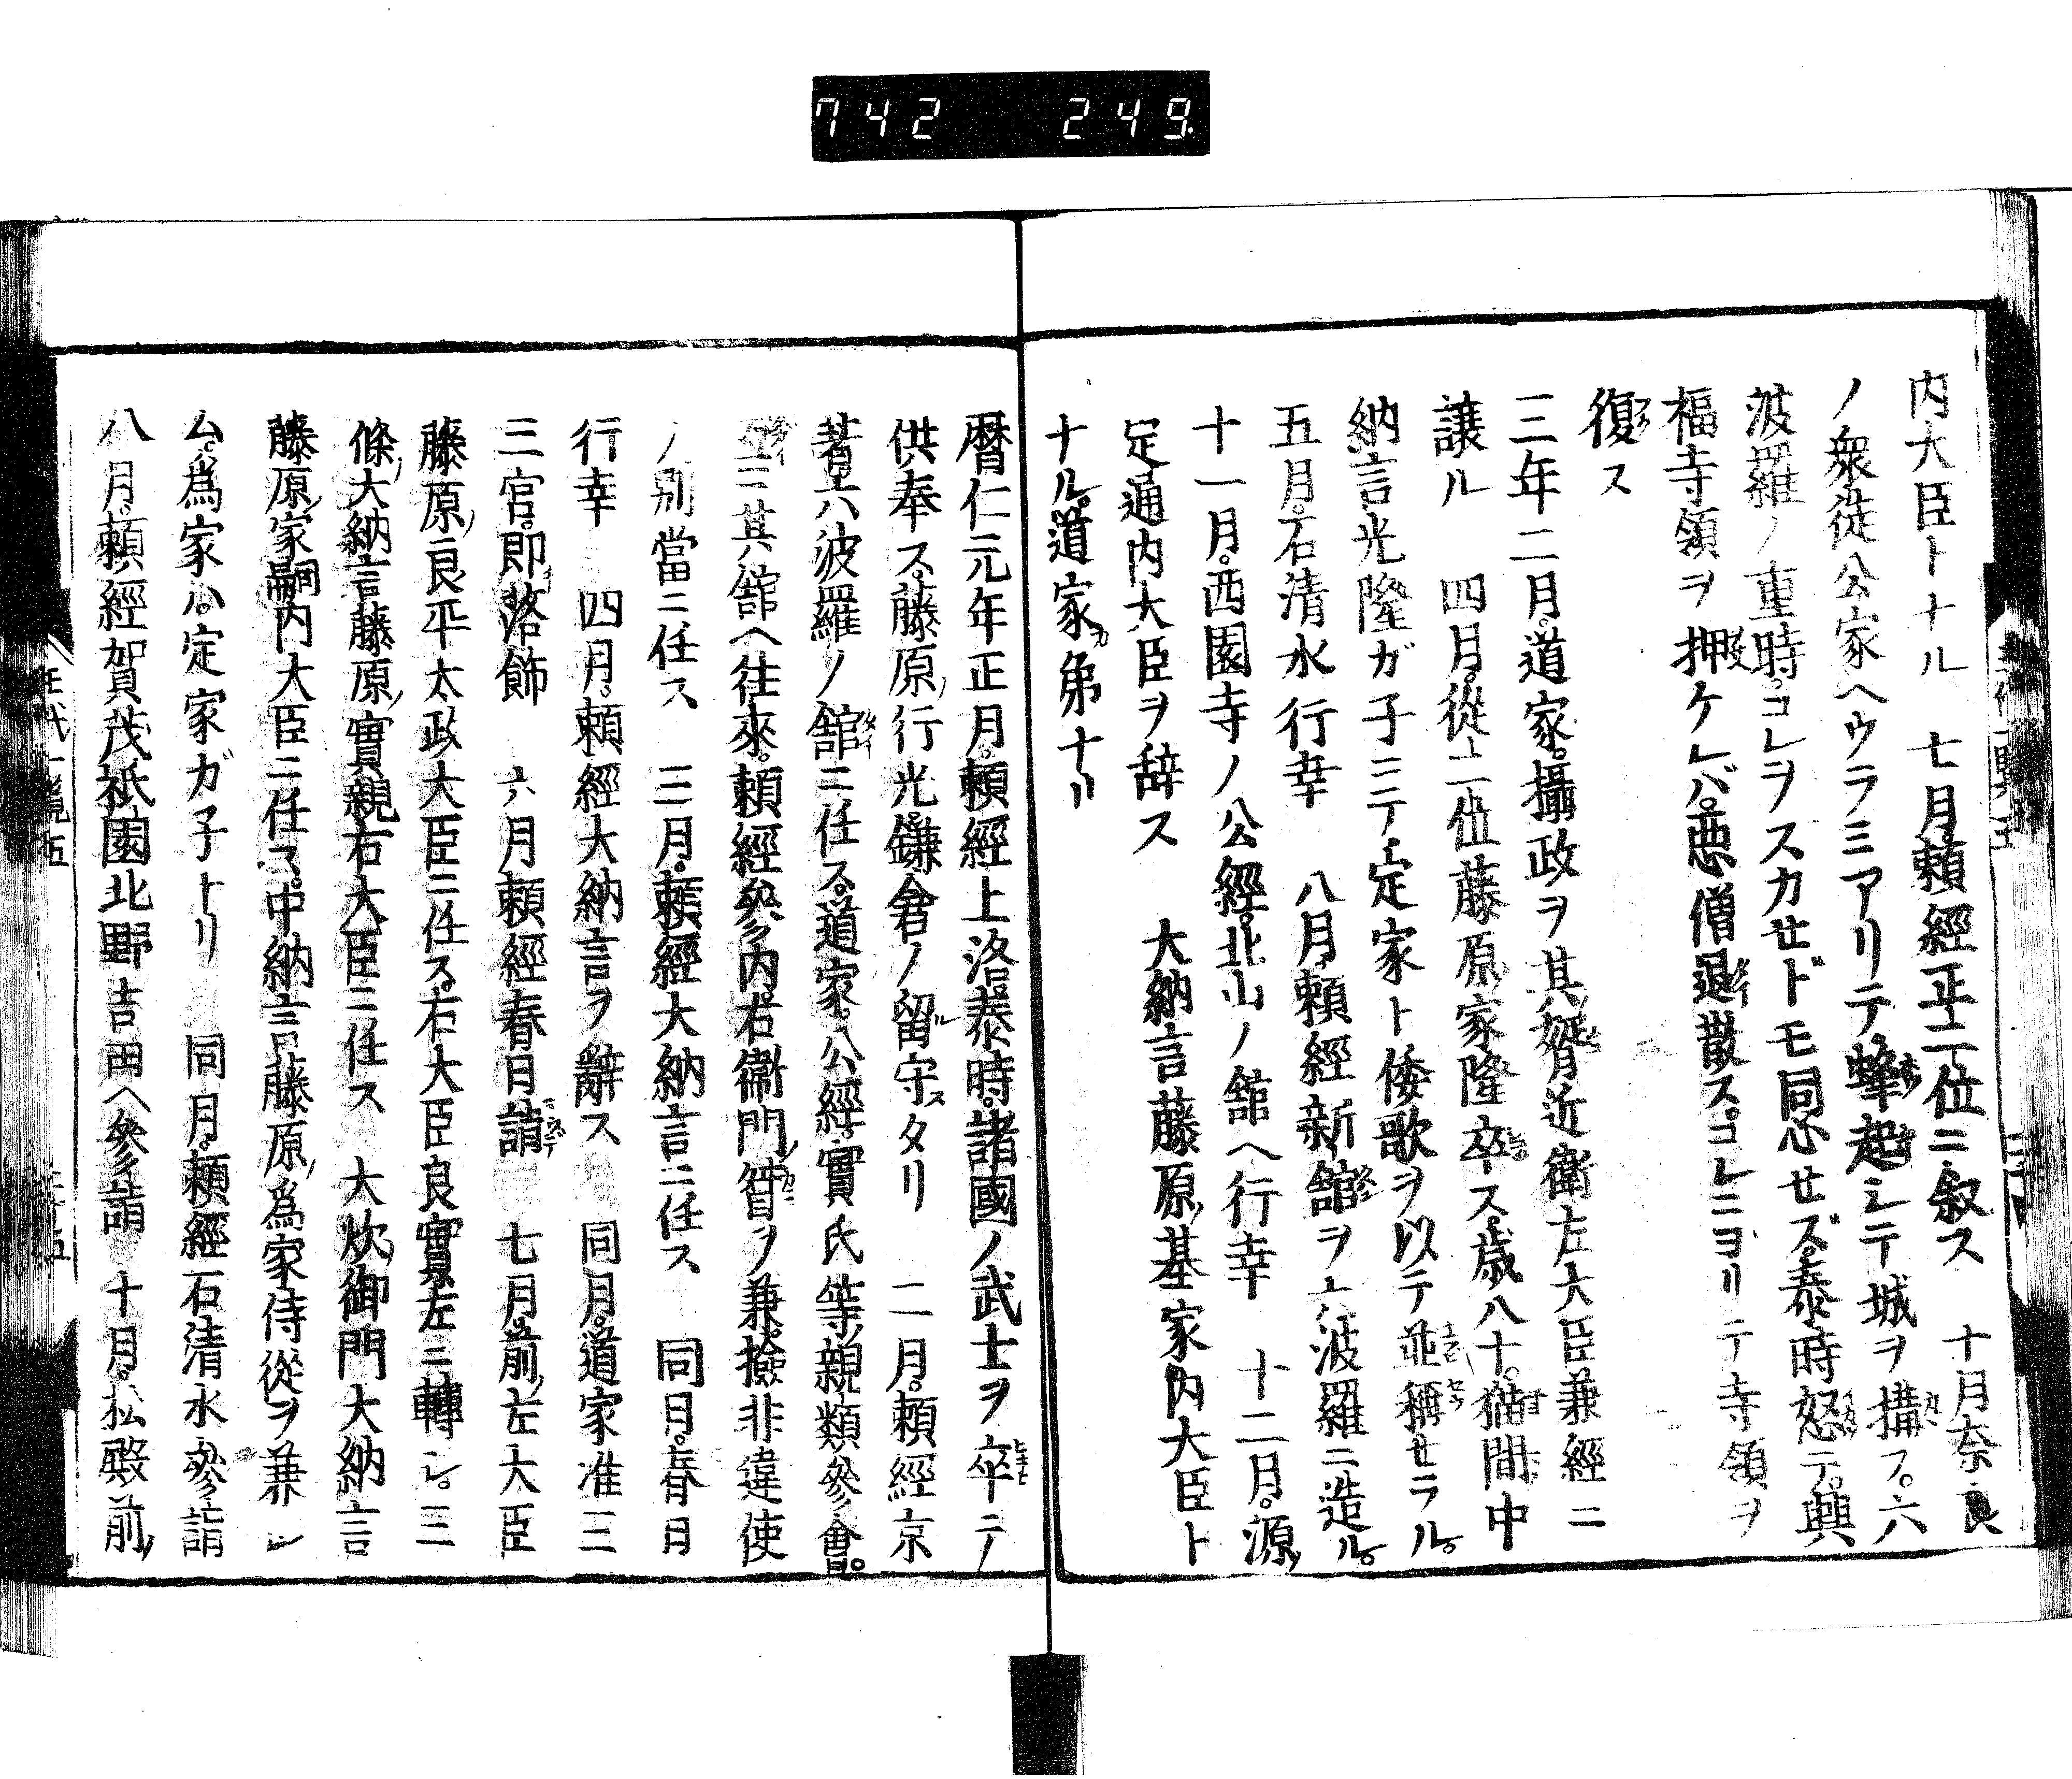 742 249
内大臣トナル 七月。頼經正二位ニ叙ス 十月奈良
ノ衆徒公家ヘウラミアリテ蜂起シテ城ヲ搆フ。六
波羅ノ重時。コレヲスカセドモ同心せズ。泰時怒テ。興
福寺領ヲ押ケレバ。悪僧退散ス。コレニヨリテ寺領ヲ
復ス
三年二月。道家。攝政ヲ其婿近衛左大臣兼經ニ
譲ル 四月。從二位藤原家隆卒ス。歳八十。猫間中
納言光隆ガ子ニテ定家ト倭歌ヲ以テ並稱せラル。
五月。石清水行幸 八月。頼經新舘ヲ六波羅ニ造ル。
十一月。西園寺ノ公經。北山ノ舘ヘ行幸 十二月。源
定通内大臣ヲ辞ス 大納言藤原基家内大臣ト
ナル。道家ガ弟ナリ
暦仁元年正月。頼經上洛泰時。諸國ノ武士ヲ卒テ
供奉ス。藤原行光鎌倉ノ留守タリ 二月。頼經京
著六波羅ノ舘ニ任ス。道家。公經。實氏等親類參會。
其舘ヘ往來。頼經參内。右衛門督ヲ兼。撿非違使
ノ別當ニ任ス 三月。頼經大納言ニ任ス 同月。春日
行幸 四月。頼經大納言ヲ辭ス 同月。道家准三
三官。即落飾 六月頼經春日詣 七月。前左大臣
藤原良平太政大臣ニ任ス。右大臣良實左ニ轉シ。三
條大納言藤原實親右大臣ニ任ス 大炊御門大納言
藤原家嗣内大臣ニ任ス。中納言藤原爲家侍從ヲ兼シ
ム。爲家ハ。定家ガ子トリ 同月。頼經石清水參詣
八月。頼經賀茂祇園北野吉田ヘ參詣 十月。松殿前